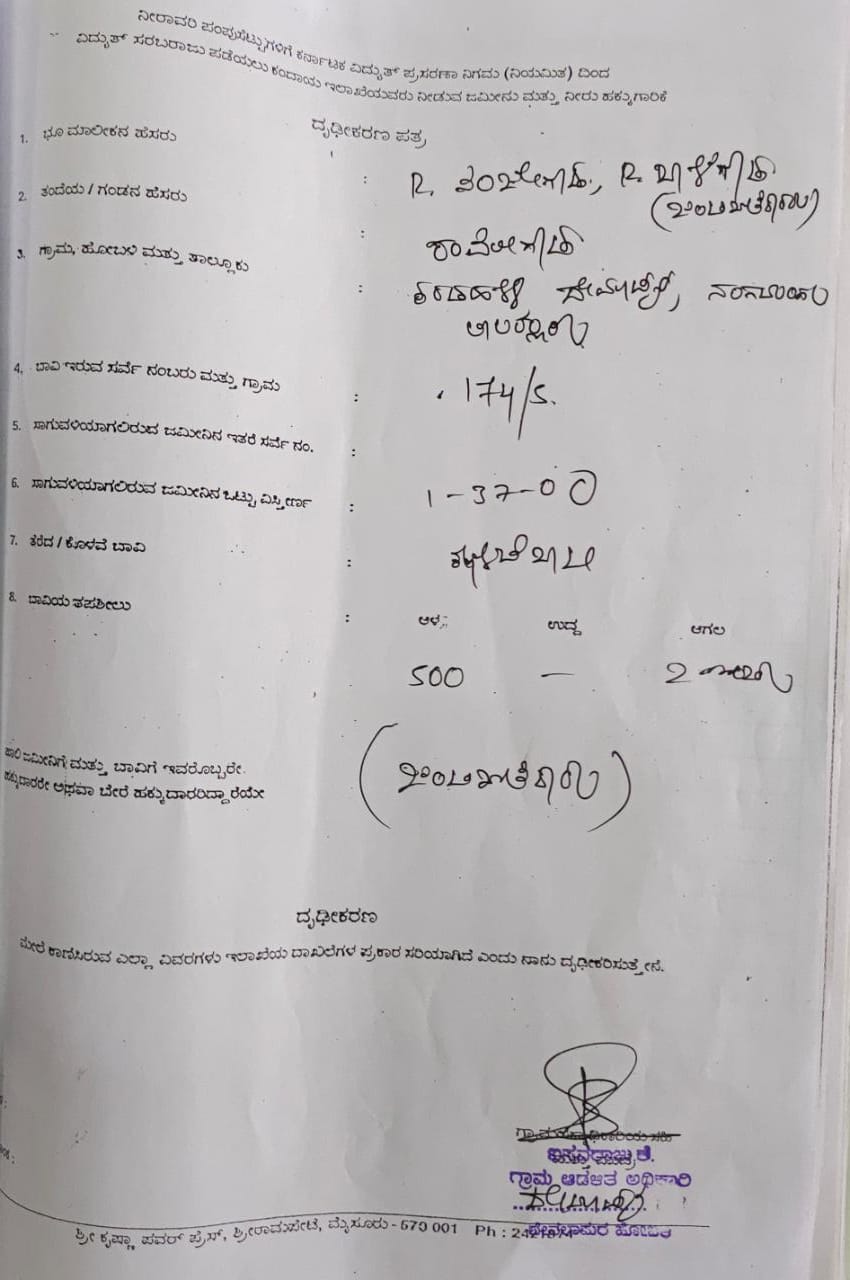 ನೀರಾವರಿ ಪಂಪುಸೆಟ್ಟುಗಳಿಗೆ ಕರ್ನಾಟಕ ವಿದ್ಯುತ್ ಪ್ರಸರಣಾ ನಿಗಮ (ನಿಯಮಿತ) ದಿಂದ
ವಿದ್ಯುತ್ ಸರಬರಾಜು ಪಡೆಯಲು ಕಂದಾಯ ಇಲಾಖೆಯವರು ನೀಡುವ ಜಮೀನು ಮತ್ತು ನೀರು ಹಕ್ಕುಗಾರಿಕೆ
ದೃಢೀಕರಣ ಪತ್ರ
1. ಭೂ ಮಾಲೀಕನ ಹೆಸರು : R. R.
(ಜಂಟಿಖಾತೆದಾರರು)
2. ತಂದೆಯ / ಗಂಡನ ಹೆಸರು :
3. ಗ್ರಾಮ, ಹೋಬಳಿ ಮತ್ತು ತಾಲ್ಲೂಕು :
4. ಬಾವಿ ಇರುವ ಸರ್ವೆ ನಂಬರು ಮತ್ತು ಗ್ರಾಮ : 174/5.
5. ಸಾಗುವಳಿಯಾಗಲಿರುವ ಜಮೀನಿನ ಇತರೆ ಸರ್ವೆ ನಂ. :
6. ಸಾಗುವಳಿಯಾಗಲಿರುವ ಜಮೀನಿನ ಒಟ್ಟು ವಿಸ್ತೀರ್ಣ : 1-37-00
7. ತೆರೆದ / ಕೊಳವೆ ಬಾವಿ : ಕೊಳವೆ ಬಾವಿ
8. ಬಾವಿಯ ತಪಶೀಲು : ಆಳ ಉದ್ದ ಅಗಲ
500 —
ಹಾಲಿ ಜಮೀನಿಗೆ ಮತ್ತು ಬಾವಿಗೆ ಇವರೊಬ್ಬರೇ
ಹಕ್ಕುದಾರರೇ ಅಥವಾ ಬೇರೆ ಹಕ್ಕುದಾರರಿದ್ದಾರೆಯೇ (ಜಂಟಿಖಾತೆದಾರರು)
ದೃಢೀಕರಣ
ಮೇಲೆ ಕಾಣಿಸಿರುವ ಎಲ್ಲಾ ವಿವರಗಳು ಇಲಾಖೆಯ ದಾಖಲೆಗಳ ಪ್ರಕಾರ ಸರಿಯಾಗಿದೆ ಎಂದು ನಾನು ದೃಢೀಕರಿಸುತ್ತೇನೆ.
ಗ್ರಾಮ ಆಡಳಿತ ಅಧಿಕಾರಿ
ಶ್ರೀ ಕೃಷ್ಣಾ ಪವರ್ ಪ್ರೆಸ್, ಶ್ರೀರಾಮಪೇಟೆ, ಮೈಸೂರು - 570 001 Ph :